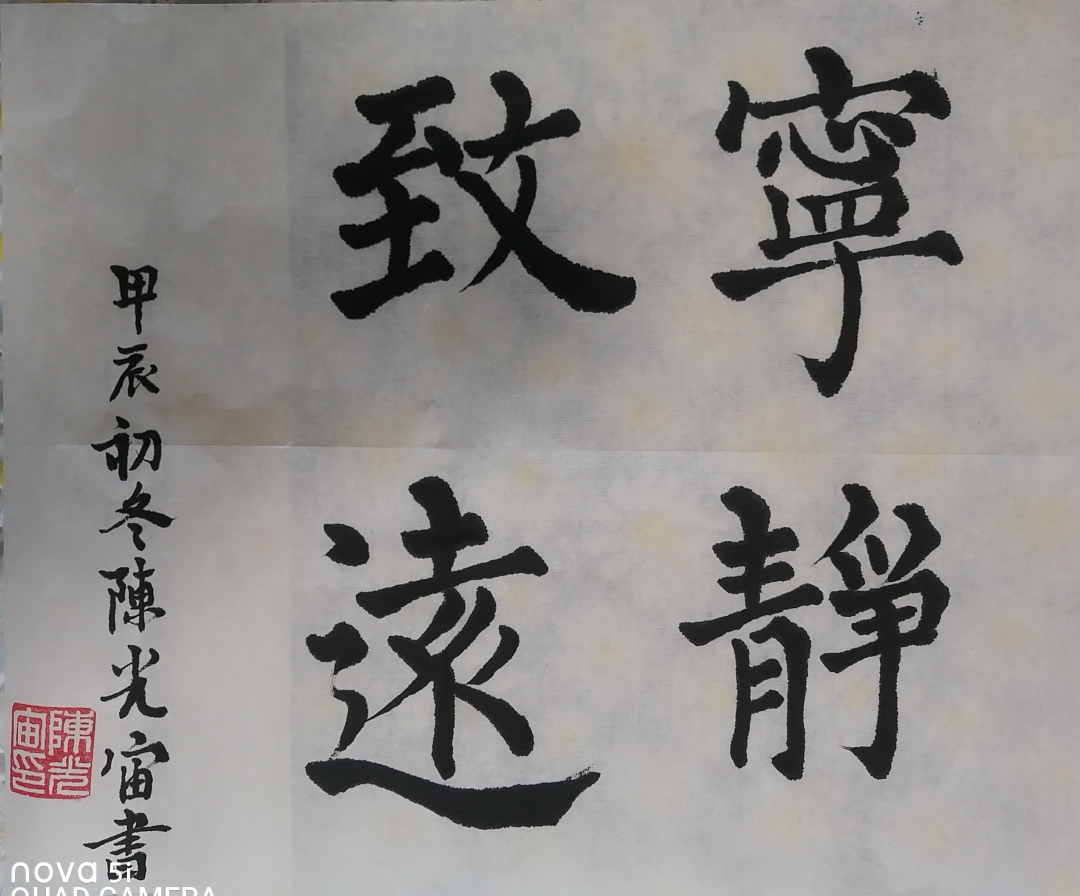 寧靜
致遠
甲辰初冬陳光宙書
陳光宙印
nova 5i
QUAD CAMERA